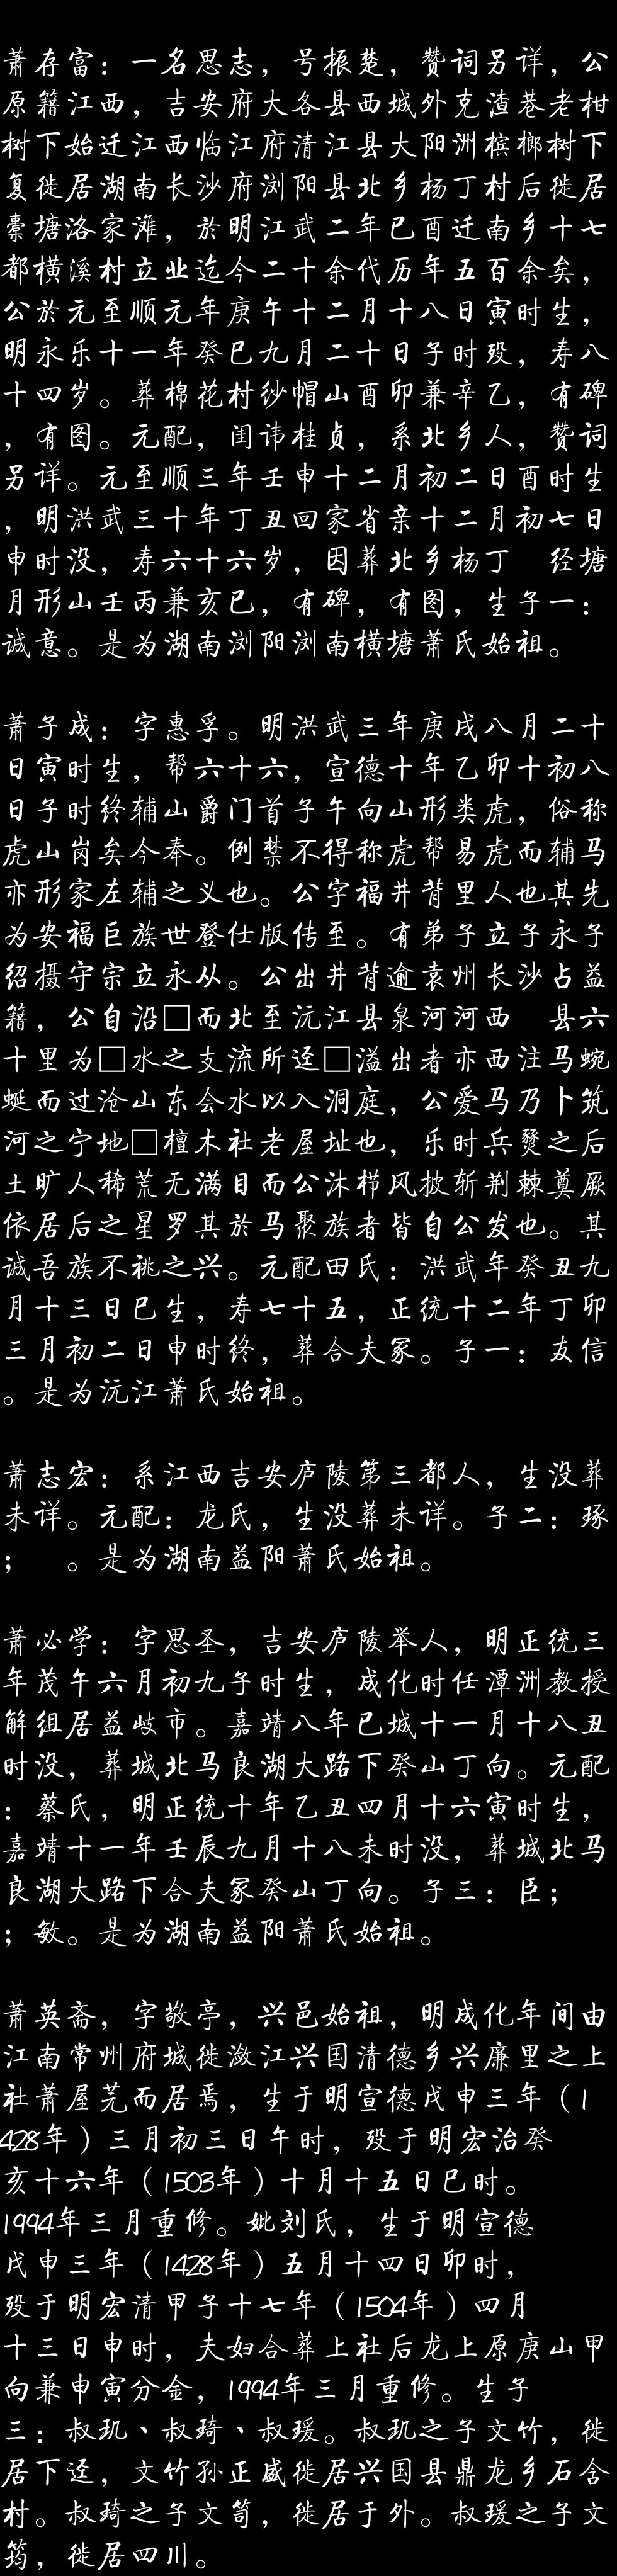 萧存富：一名思志，号振楚，赞词另详，公
原籍江西，吉安府大各县西城外克渣巷老柑
树下始迁江西临江府清江县大阳洲槟榔树下
复徙居湖南长沙府浏阳县北乡杨丁村后徙居
橐塘洛家滩，於明江武二年已酉迁南乡十七
都横溪村立业迄今二十余代历年五百余矣，
公於元至顺元年庚午十二月十八日寅时生，
明永乐十一年癸巳九月二十日子时殁，寿八
十四岁。葬棉花村纱帽山酉卯兼辛乙，有碑
，有图。元配，闰讳桂贞，系北乡人，赞词
另详。元至顺三年壬申十二月初二日酉时生
，明洪武三十年丁丑回家省亲十二月初七日
申时没，寿六十六岁，因葬北乡杨丁　经塘
月形山壬丙兼亥巳，有碑，有图，生子一：
诚意。是为湖南浏阳浏南横塘萧氏始祖。

萧子成：字惠孚。明洪武三年庚戌八月二十
日寅时生，帮六十六，宣德十年乙卯十初八
日子时终辅山爵门首子午向山形类虎，俗称
虎山岗矣今奉。例禁不得称虎帮易虎而辅马
亦形家左辅之义也。公字福井背里人也其先
为安福巨族世登仕版传至。有弟子立子永子
绍摄守宗立永从。公出井背逾袁州长沙占益
籍，公自沿□而北至沅江县泉河河西　县六
十里为□水之支流所迳□溢出者亦西注马蜿
蜒而过沧山东会水以入洞庭，公爱马乃卜筑
河之宁地□檀木社老屋址也，乐时兵燹之后
土旷人稀荒无满目而公沐栉风披斩荆棘奠厥
依居后之星罗其於马聚族者皆自公发也。其
诚吾族不祧之兴。元配田氏：洪武年癸丑九
月十三日巳生，寿七十五，正统十二年丁卯
三月初二日申时终，葬合夫冢。子一：友信
。是为沅江萧氏始祖。

萧志宏：系江西吉安庐陵第三都人，生没葬
未详。元配：龙氏，生没葬未详。子二：琢
；　。是为湖南益阳萧氏始祖。

萧必学：字思圣，吉安庐陵举人，明正统三
年茂午六月初九子时生，成化时任潭洲教授
解组居益岐市。嘉靖八年已城十一月十八丑
时没，葬城北马良湖大路下癸山丁向。元配
：蔡氏，明正统十年乙丑四月十六寅时生，
嘉靖十一年壬辰九月十八未时没，葬城北马
良湖大路下合夫冢癸山丁向。子三：臣；
；敏。是为湖南益阳萧氏始祖。

萧英斋，字敬亭，兴邑始祖，明成化年间由
江南常州府城徙潋江兴国清德乡兴廉里之上
社萧屋芫而居焉，生于明宣德戊申三年（1
428年）三月初三日午时，殁于明宏治癸
亥十六年（1503年）十月十五日巳时。
1994年三月重修。妣刘氏，生于明宣德
戊申三年（1428年）五月十四日卯时，
殁于明宏清甲子十七年（1504年）四月
十三日申时，夫妇合葬上社后龙上原庚山甲
向兼申寅分金，1994年三月重修。生子
三：叔玑、叔琦、叔瑗。叔玑之子文竹，徙
居下迳，文竹孙正盛徙居兴国县鼎龙乡石含
村。叔琦之子文笥，徙居于外。叔瑗之子文
筠，徙居四川。